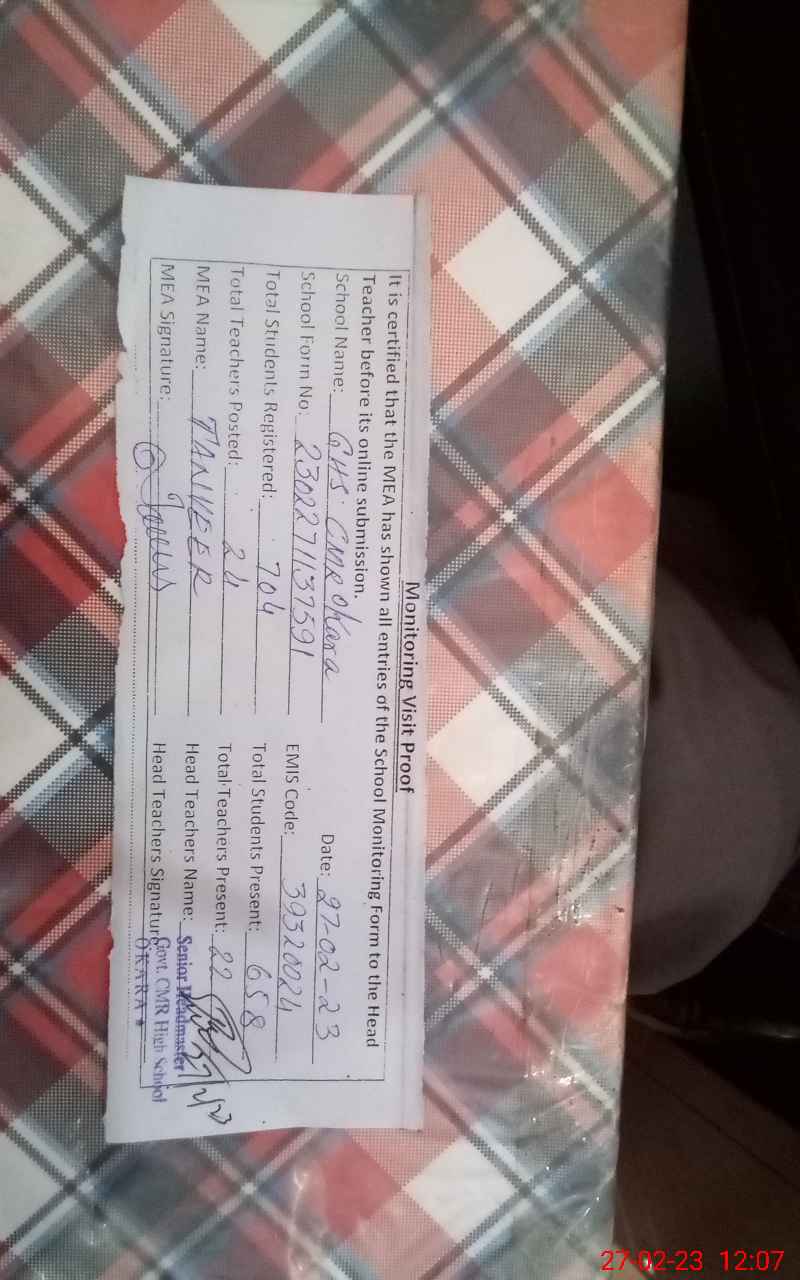 Monitoring Visit Proof
It is certified that the MEA has shown all entries of the School Monitoring Form to the Head
Teacher before its online submission.
Date: 27-02-23
School Name: GHS CMR Okara
School Form No: 2302271137591 EMIS Code: 39320024
Total Students Registered: 704 Total Students Present: 658
Total Teachers Posted: 24 Total Teachers Present: 22
MEA Name: TANVEER Head Teachers Name:
MEA Signature: Head Teachers Signature
Senior Headmaster
Govt. CMR High School
OKARA
27/2/23
27-02-23 12:07